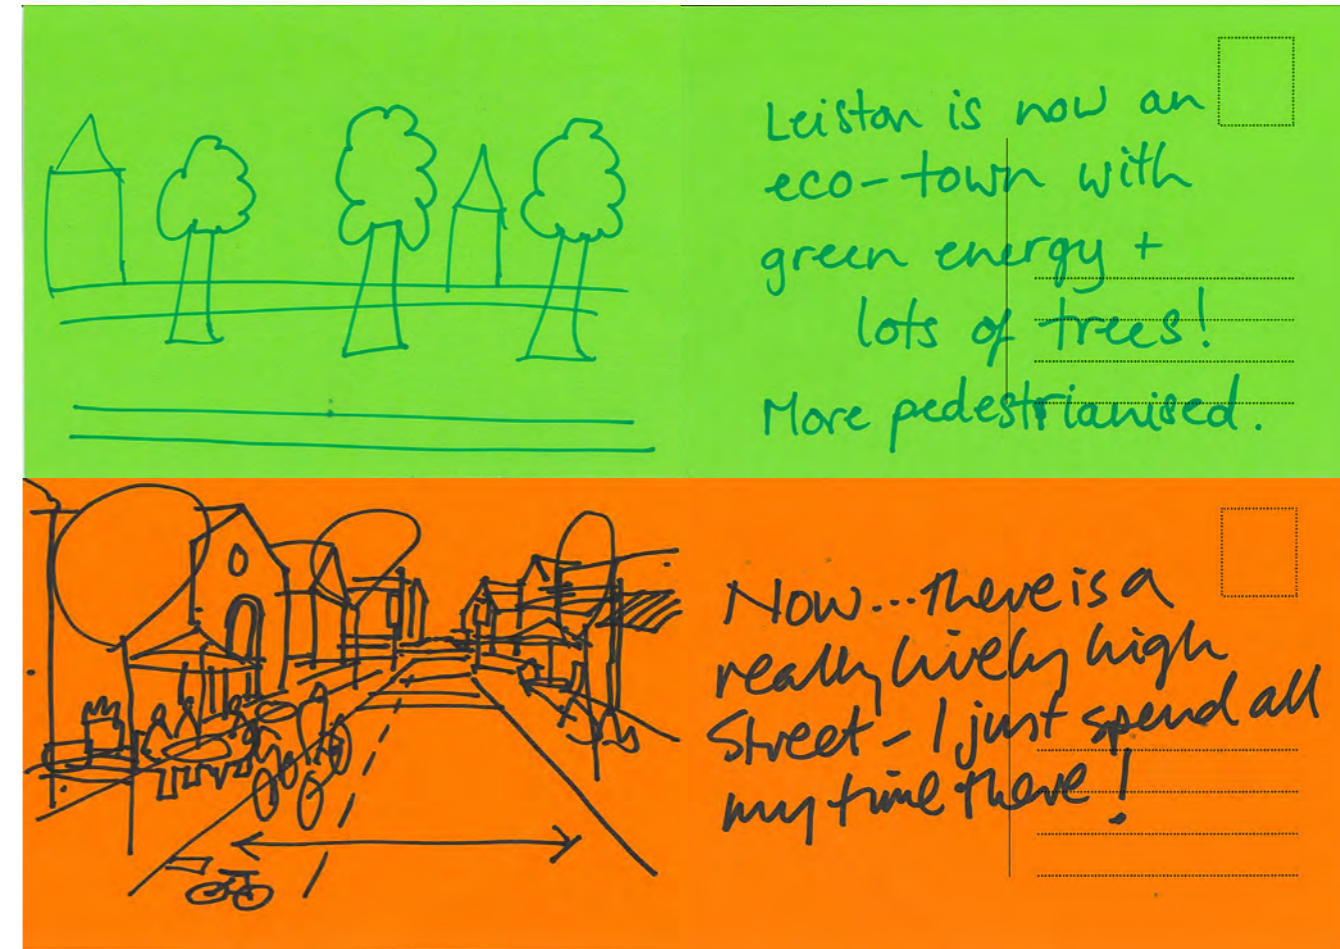 Leiston is now an
eco-town with
green energy +
lots of trees!
More pedestrianised.
Now...there is a
really lively high
Street - I just spend all
my time there!